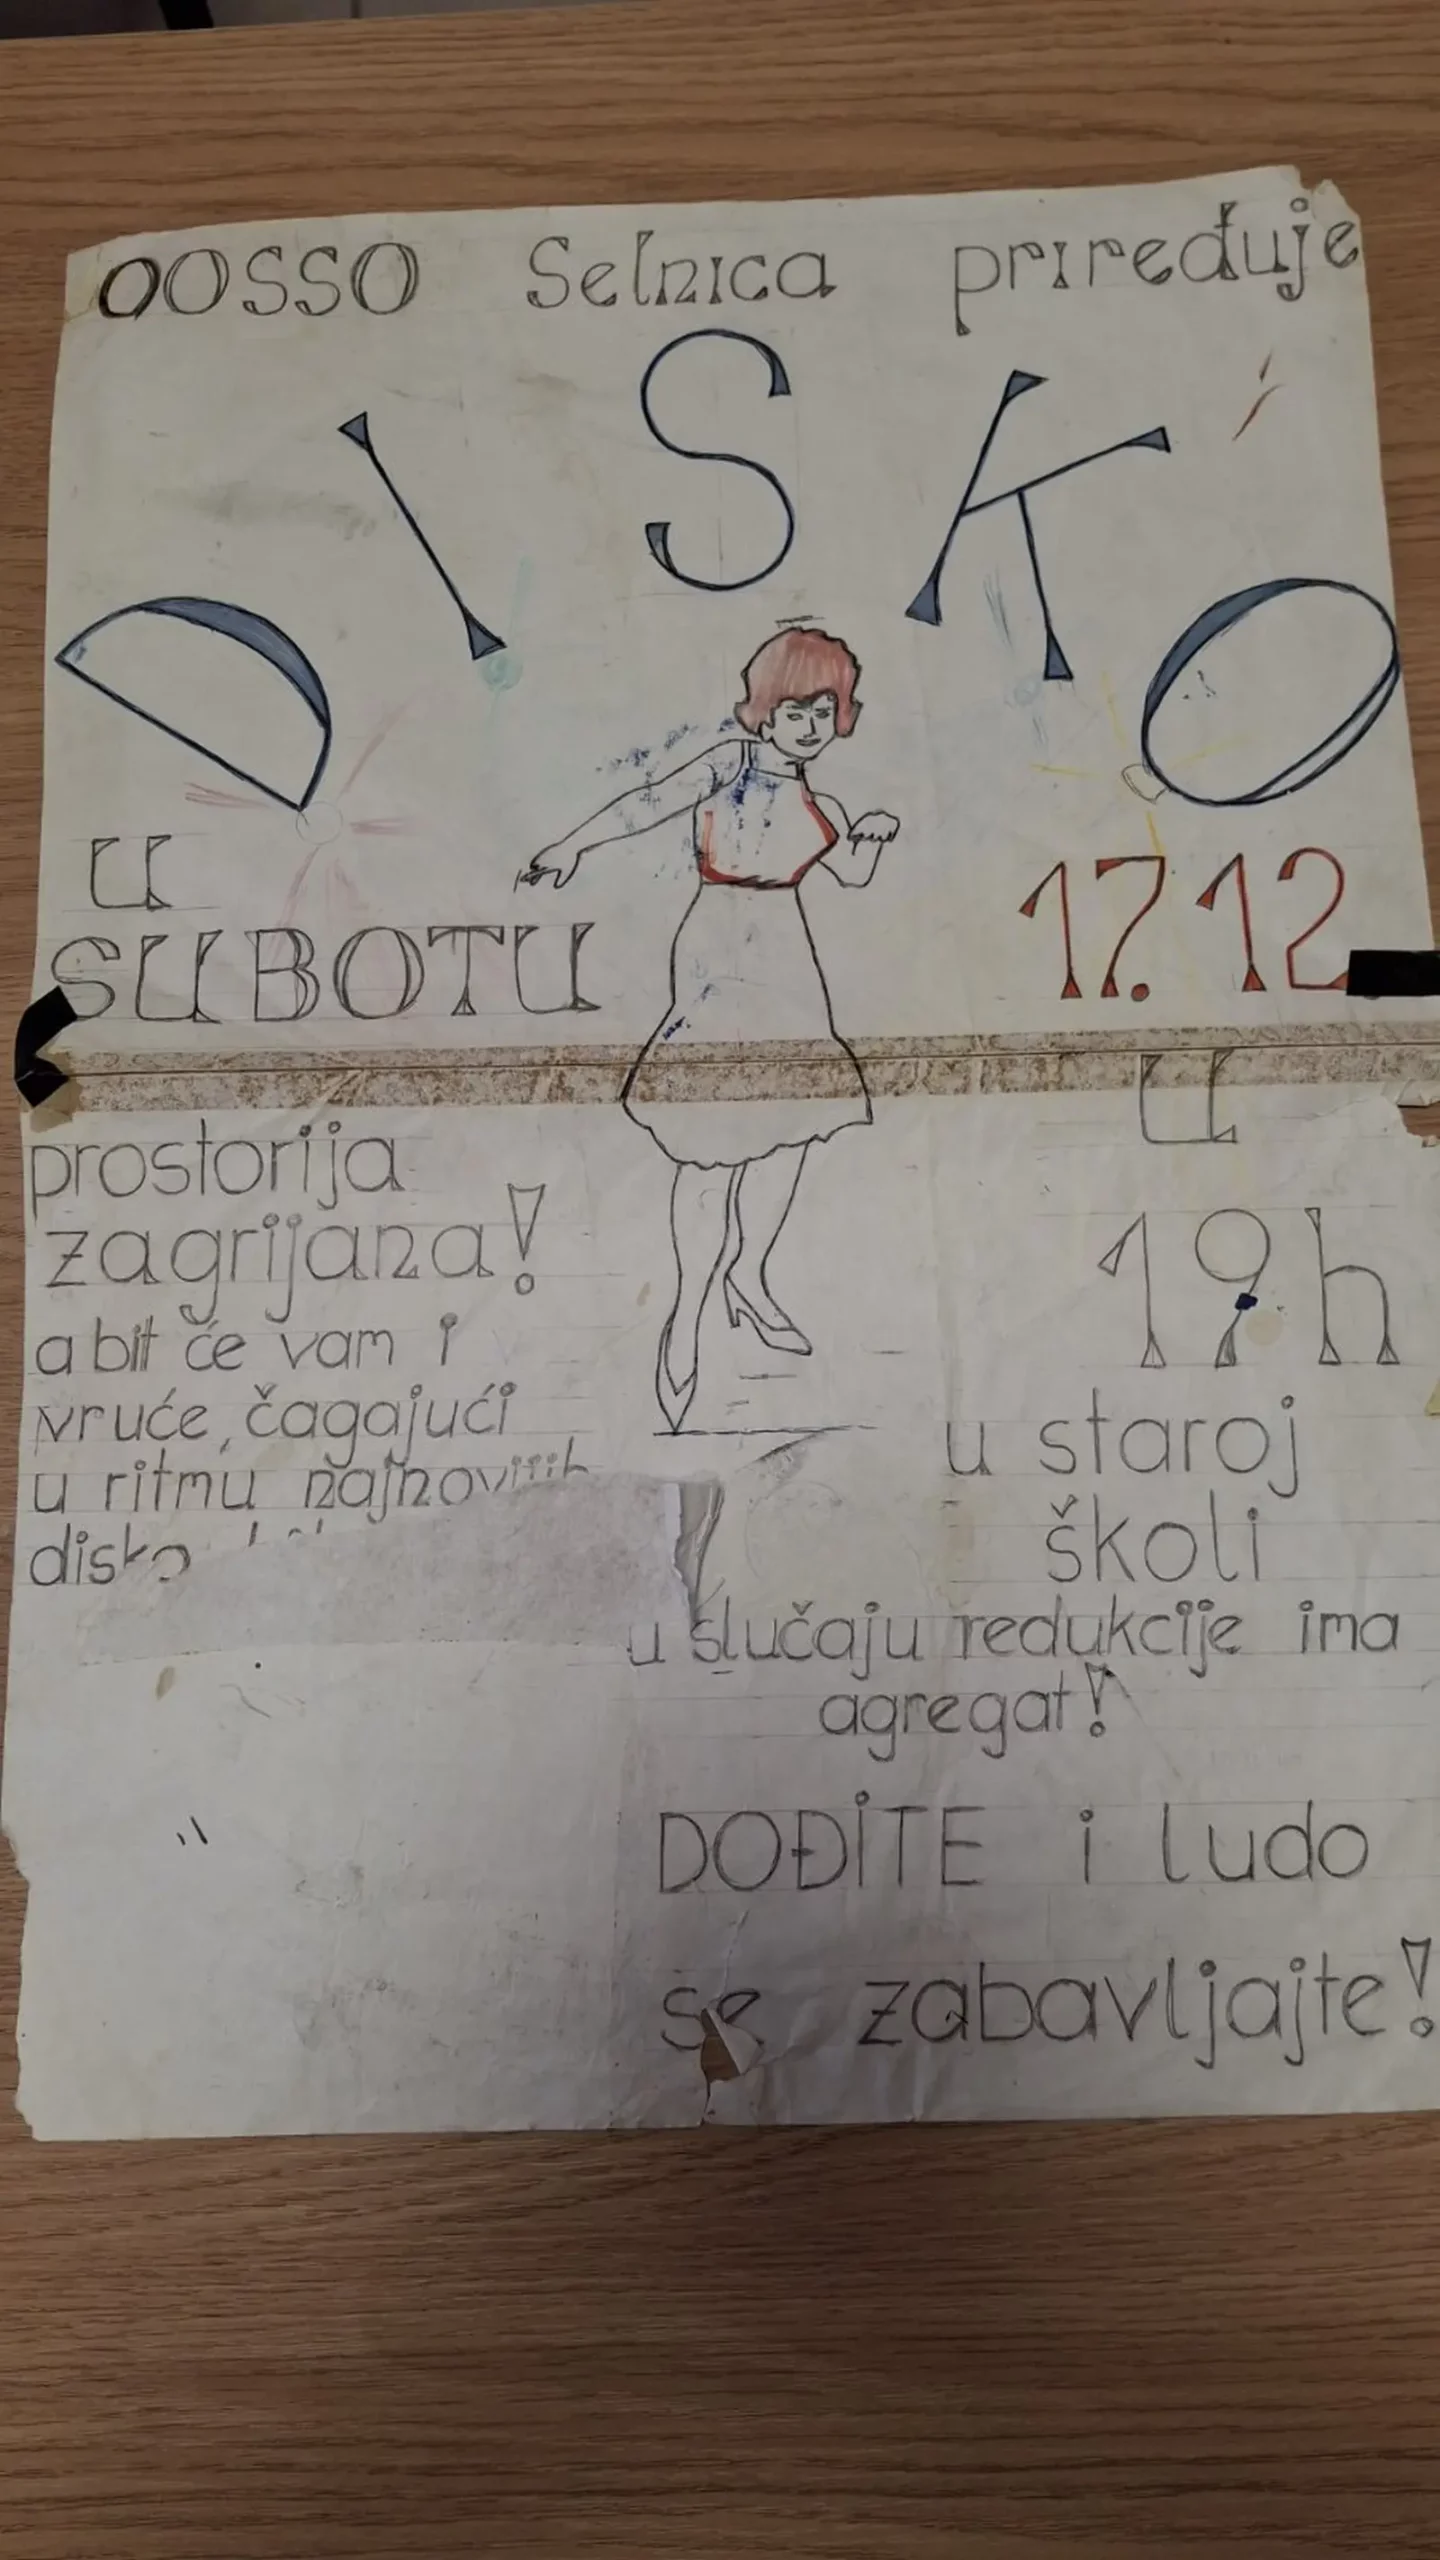 OOSSO Selnica priređuje
DISKO
u
SUBOTU
17.12
u
19h
prostorija
zagrijana!
a bit će vam i
vruće, čagajući
u ritmu najnovijih
disko
u staroj
školi
u slučaju redukcije ima
agregat!
DOĐITE i ludo
se zabavljajte!